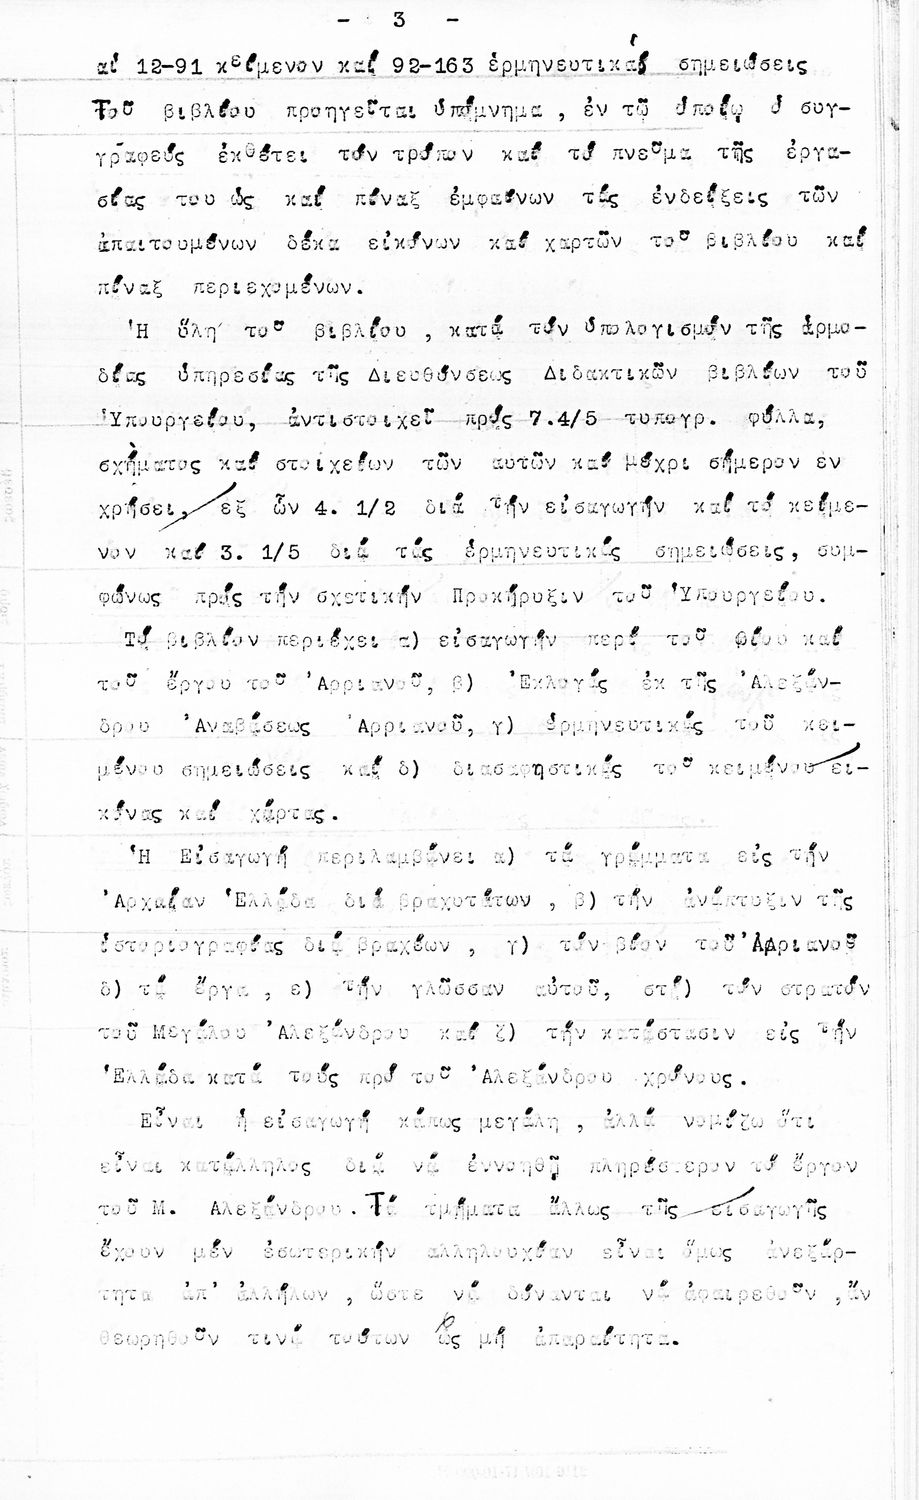 - 3 -
αἱ 12-91 κείμενον καί 92-163 ἑρμηνευτικάς σημειώσεις
Τοῦ βιβλίου προηγεῖται ὑπόμνημα , ἐν τῷ ὁποίῳ ὁ συγ-
γραφεύς ἐκθέτει τόν τρόπον καί τό πνεῦμα τῆς ἐργα-
σίας του ὡς καί πίναξ ἐμφαίνων τάς ἐνδείξεις τῶν
ἀπαιτουμένων δέκα εἰκόνων καί χαρτῶν τοῦ βιβλίου καί
πίναξ περιεχομένων.
Ἡ ὕλη τοῦ βιβλίου , κατά τόν ὑπολογισμόν τῆς ἁρμο-
δίας ὑπηρεσίας τῆς Διευθύνσεως Διδακτικῶν βιβλίων τοῦ
Ὑπουργείου, ἀντιστοιχεῖ πρός 7.4/5 τυπογρ. φύλλα,
σχήματος καί στοιχείων τῶν αυτῶν καί μέχρι σήμερον εν
χρήσει, εξ ὧν 4. 1/2 διά τήν εἰσαγωγήν καί τό κείμε-
νον καί 3. 1/5 διά τάς ἑρμηνευτικάς σημειώσεις, συμ-
φώνως πρός τήν σχετικήν Προκήρυξιν τοῦ Ὑπουργείου.
Τό βιβλίον περιέχει α) εἰσαγωγήν περί τοῦ βίου καί
τοῦ ἔργου τοῦ Ἀρριανοῦ, β) Ἐκλογάς ἐκ τῆς Ἀλεξάν-
δρου Ἀναβάσεως Ἀρριανοῦ, γ) ἑρμηνευτικάς τοῦ κει-
μένου σημειώσεις καί δ) διασαφηστικάς τοῦ κειμένου ει-
κόνας καί χάρτας.
Ἡ Εἰσαγωγή περιλαμβάνει α) τά γράμματα εἰς τήν
Ἀρχαίαν Ἑλλάδα διά βραχυτάτων , β) τήν ἀνάπτυξιν τῆς
ἱστοριογραφίας διά βραχέων , γ) τόν βίον τοῦ Ἀρριανοῦ
δ) τά ἔργα , ε) τήν γλῶσσαν αὐτοῦ, στ) τόν στρατόν
τοῦ Μεγάλου Ἀλεξάνδρου καί ζ) τήν κατάστασιν εἰς τήν
Ἑλλάδα κατά τούς πρό τοῦ Ἀλεξάνδρου χρόνους.
Εἶναι ἡ εἰσαγωγή κάπως μεγάλη , ἀλλά νομίζω ὅτι
εἶναι κατάλληλος διά νά ἐννοηθῇ πληρέστερον τό ἔργον
τοῦ Μ. Αλεξάνδρου. Τά τμήματα ἄλλως τῆς εἰσαγωγῆς
ἔχουν μέν ἐσωτερικήν αλληλουχίαν εἶναι ὅμως ἀνεξάρ-
τητα ἀπ' ἀλλήλων , ὥστε νά δύνανται νά ἀφαιρεθοῦν ,ἄν
θεωρηθοῦν τινά τούτων ὡς μή ἀπαραίτητα.